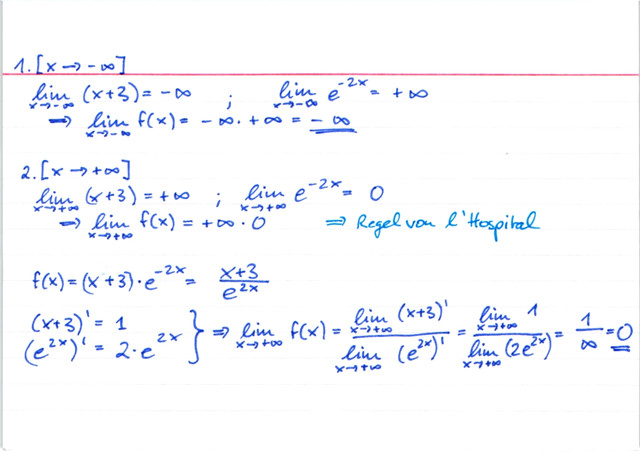 1. [x → -∞]
lim x→-∞ (x+3) = -∞ ; lim x→-∞ e^-2x = +∞
⇒ lim x→-∞ f(x) = -∞ · +∞ = -∞
2. [x → +∞]
lim x→+∞ (x+3) = +∞ ; lim x→+∞ e^-2x = 0
⇒ lim x→+∞ f(x) = +∞ · 0 ⇒ Regel von l'Hospital
f(x) = (x+3) · e^-2x = x+3 / e^2x
(x+3)' = 1
(e^2x)' = 2 · e^2x } ⇒ lim x→+∞ f(x) = lim x→+∞ (x+3)' / lim x→+∞ (e^2x)' = lim x→+∞ 1 / lim x→+∞ (2e^2x) = 1/∞ = 0